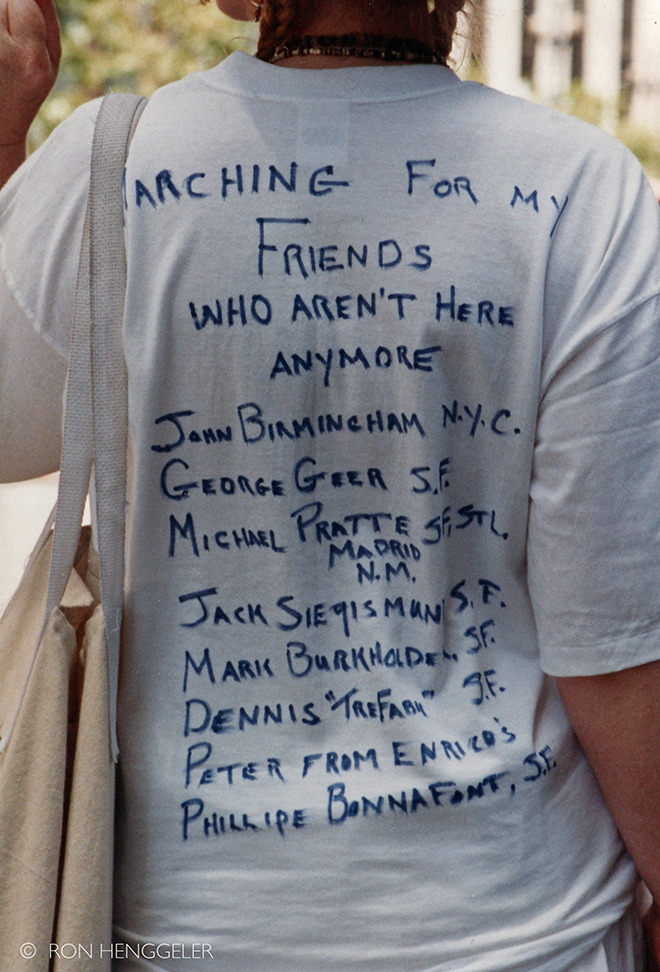 MARCHING FOR MY
FRIENDS
WHO AREN'T HERE
ANYMORE
JOHN BIRMINGHAM N.Y.C.
GEORGE GEER S.F.
MICHAEL PRATTE SF, STL.
MADRID
N.M.
JACK SIEGISMUN S.F.
MARK BURKHOLDER. SF.
DENNIS "TREFABU" S.F.
PETER FROM ENRICO'S
PHILLIPE BONNAFONT, S.F.
© RON HENGGELER